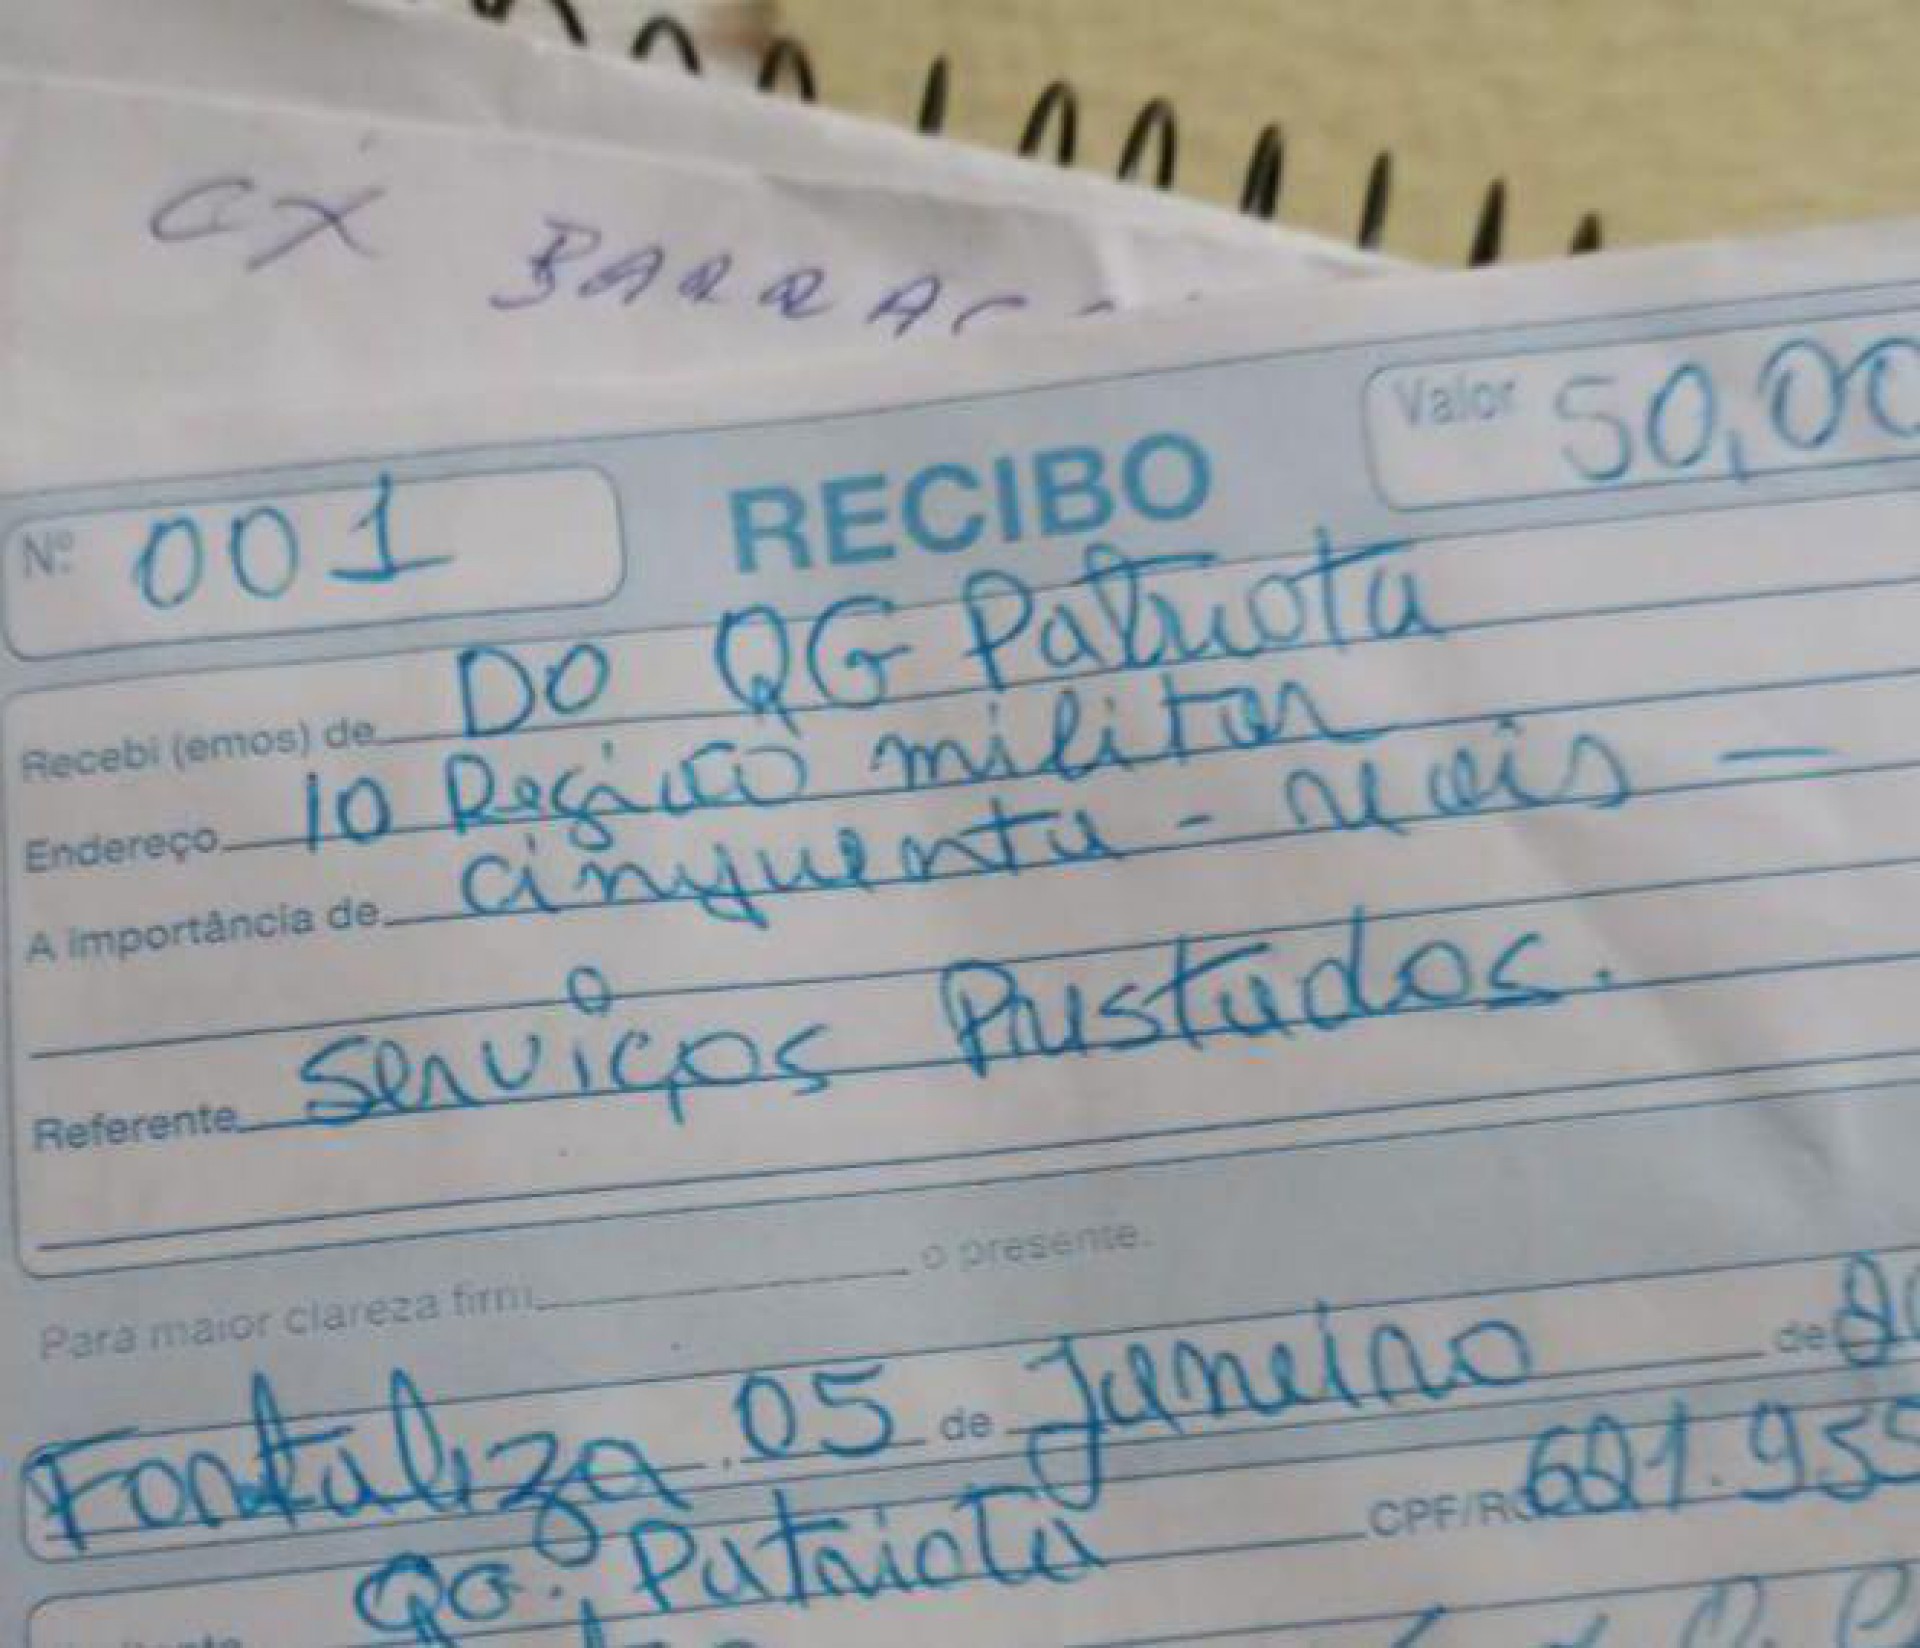 CX BARRAC
Nº 001 RECIBO Valor 50,00
Recebi (emos) de DO QG Patriota
Endereço 10 Região militar
A importância de cinquenta - reais -
Referente Serviços Prestados.
Para maior clareza firm o presente.
Fortaleza, 05 de Janeiro de 20
QG. Patriota CPF/RG 621.955